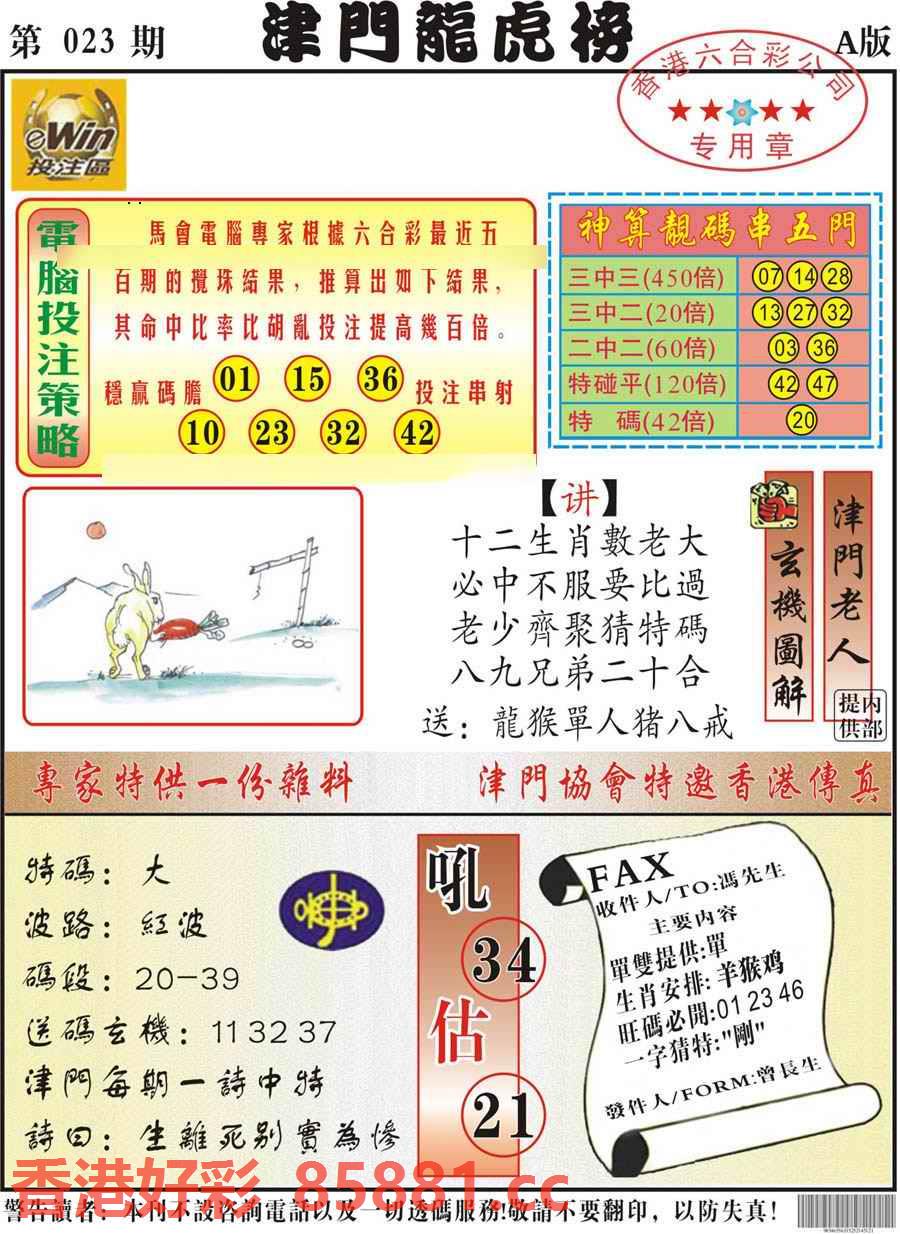 第 023 期
津門龍虎榜
A版
香港六合彩公司
专用章
eWin
投注區
電腦投注策略
馬會電腦專家根據六合彩最近五
百期的攪珠結果，推算出如下結果，
其命中比率比胡亂投注提高幾百倍。
穩贏碼膽 01 15 36 投注串射
10 23 32 42
神算靚碼串五門
三中三(450倍) 07 14 28
三中二(20倍) 13 27 32
二中二(60倍) 03 36
特碰平(120倍) 42 47
特 碼(42倍) 20
【讲】
十二生肖數老大
必中不服要比過
老少齊聚猜特碼
八九兄弟二十合
送：龍猴單人猪八戒
玄機圖解
津門老人
内部提供
專家特供一份雜料
津門協會特邀香港傳真
特碼：大
波路：紅波
碼段：20-39
送碼玄機：11 32 37
津門每期一詩中特
詩曰：生離死别實為慘
吼
34
估
21
FAX
收件人/TO:馮先生
主要内容
單雙提供:單
生肖安排:羊猴鸡
旺碼必開:01 23 46
一字猜特:"剛"
發件人/FORM:曾長生
香港好彩 85881.cc
警告讀者：本刊不設咨詢電話以及一切透碼服務!敬請不要翻印，以防失真!